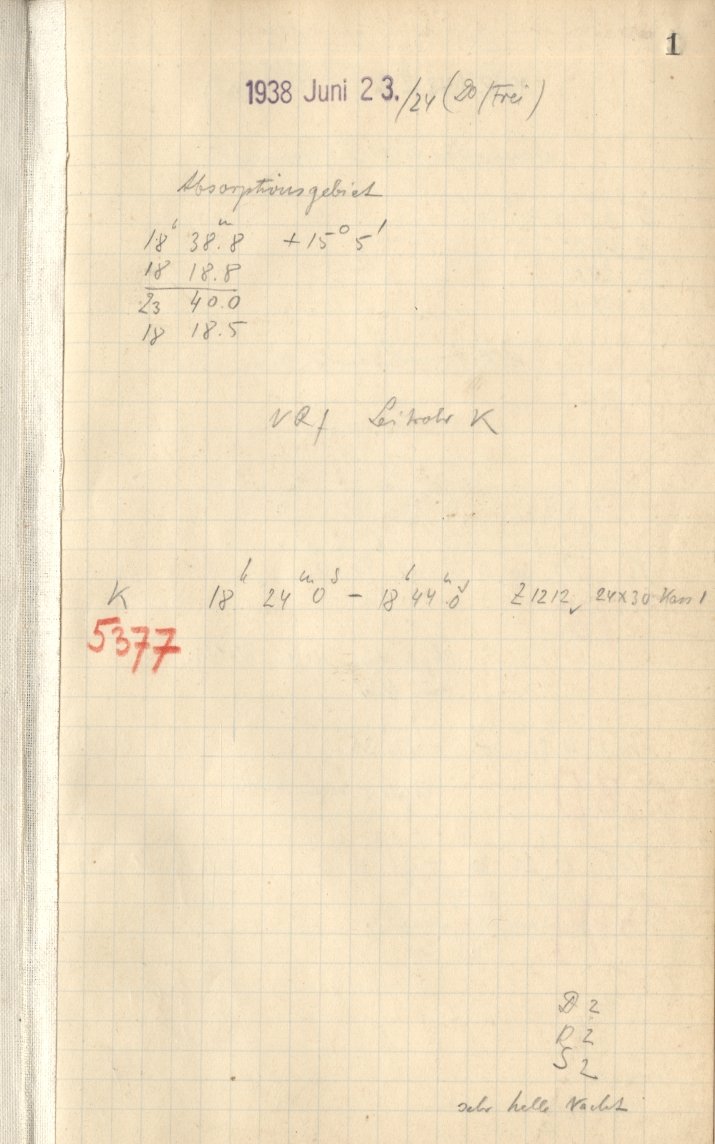 1
1938 Juni 23./24 (Do/Frei)
Absorptionsgebiet
18ʰ 38.ᵐ8 +15° 5'
18 18.8
23 40.0
18 18.5
Leitrohr K
K 18ʰ 24ᵐ 0ˢ – 18ʰ 44ᵐ 0ˢ Z1212 24×30 Kass 1
5377
D 2
R 2
S 2
sehr helle Nacht